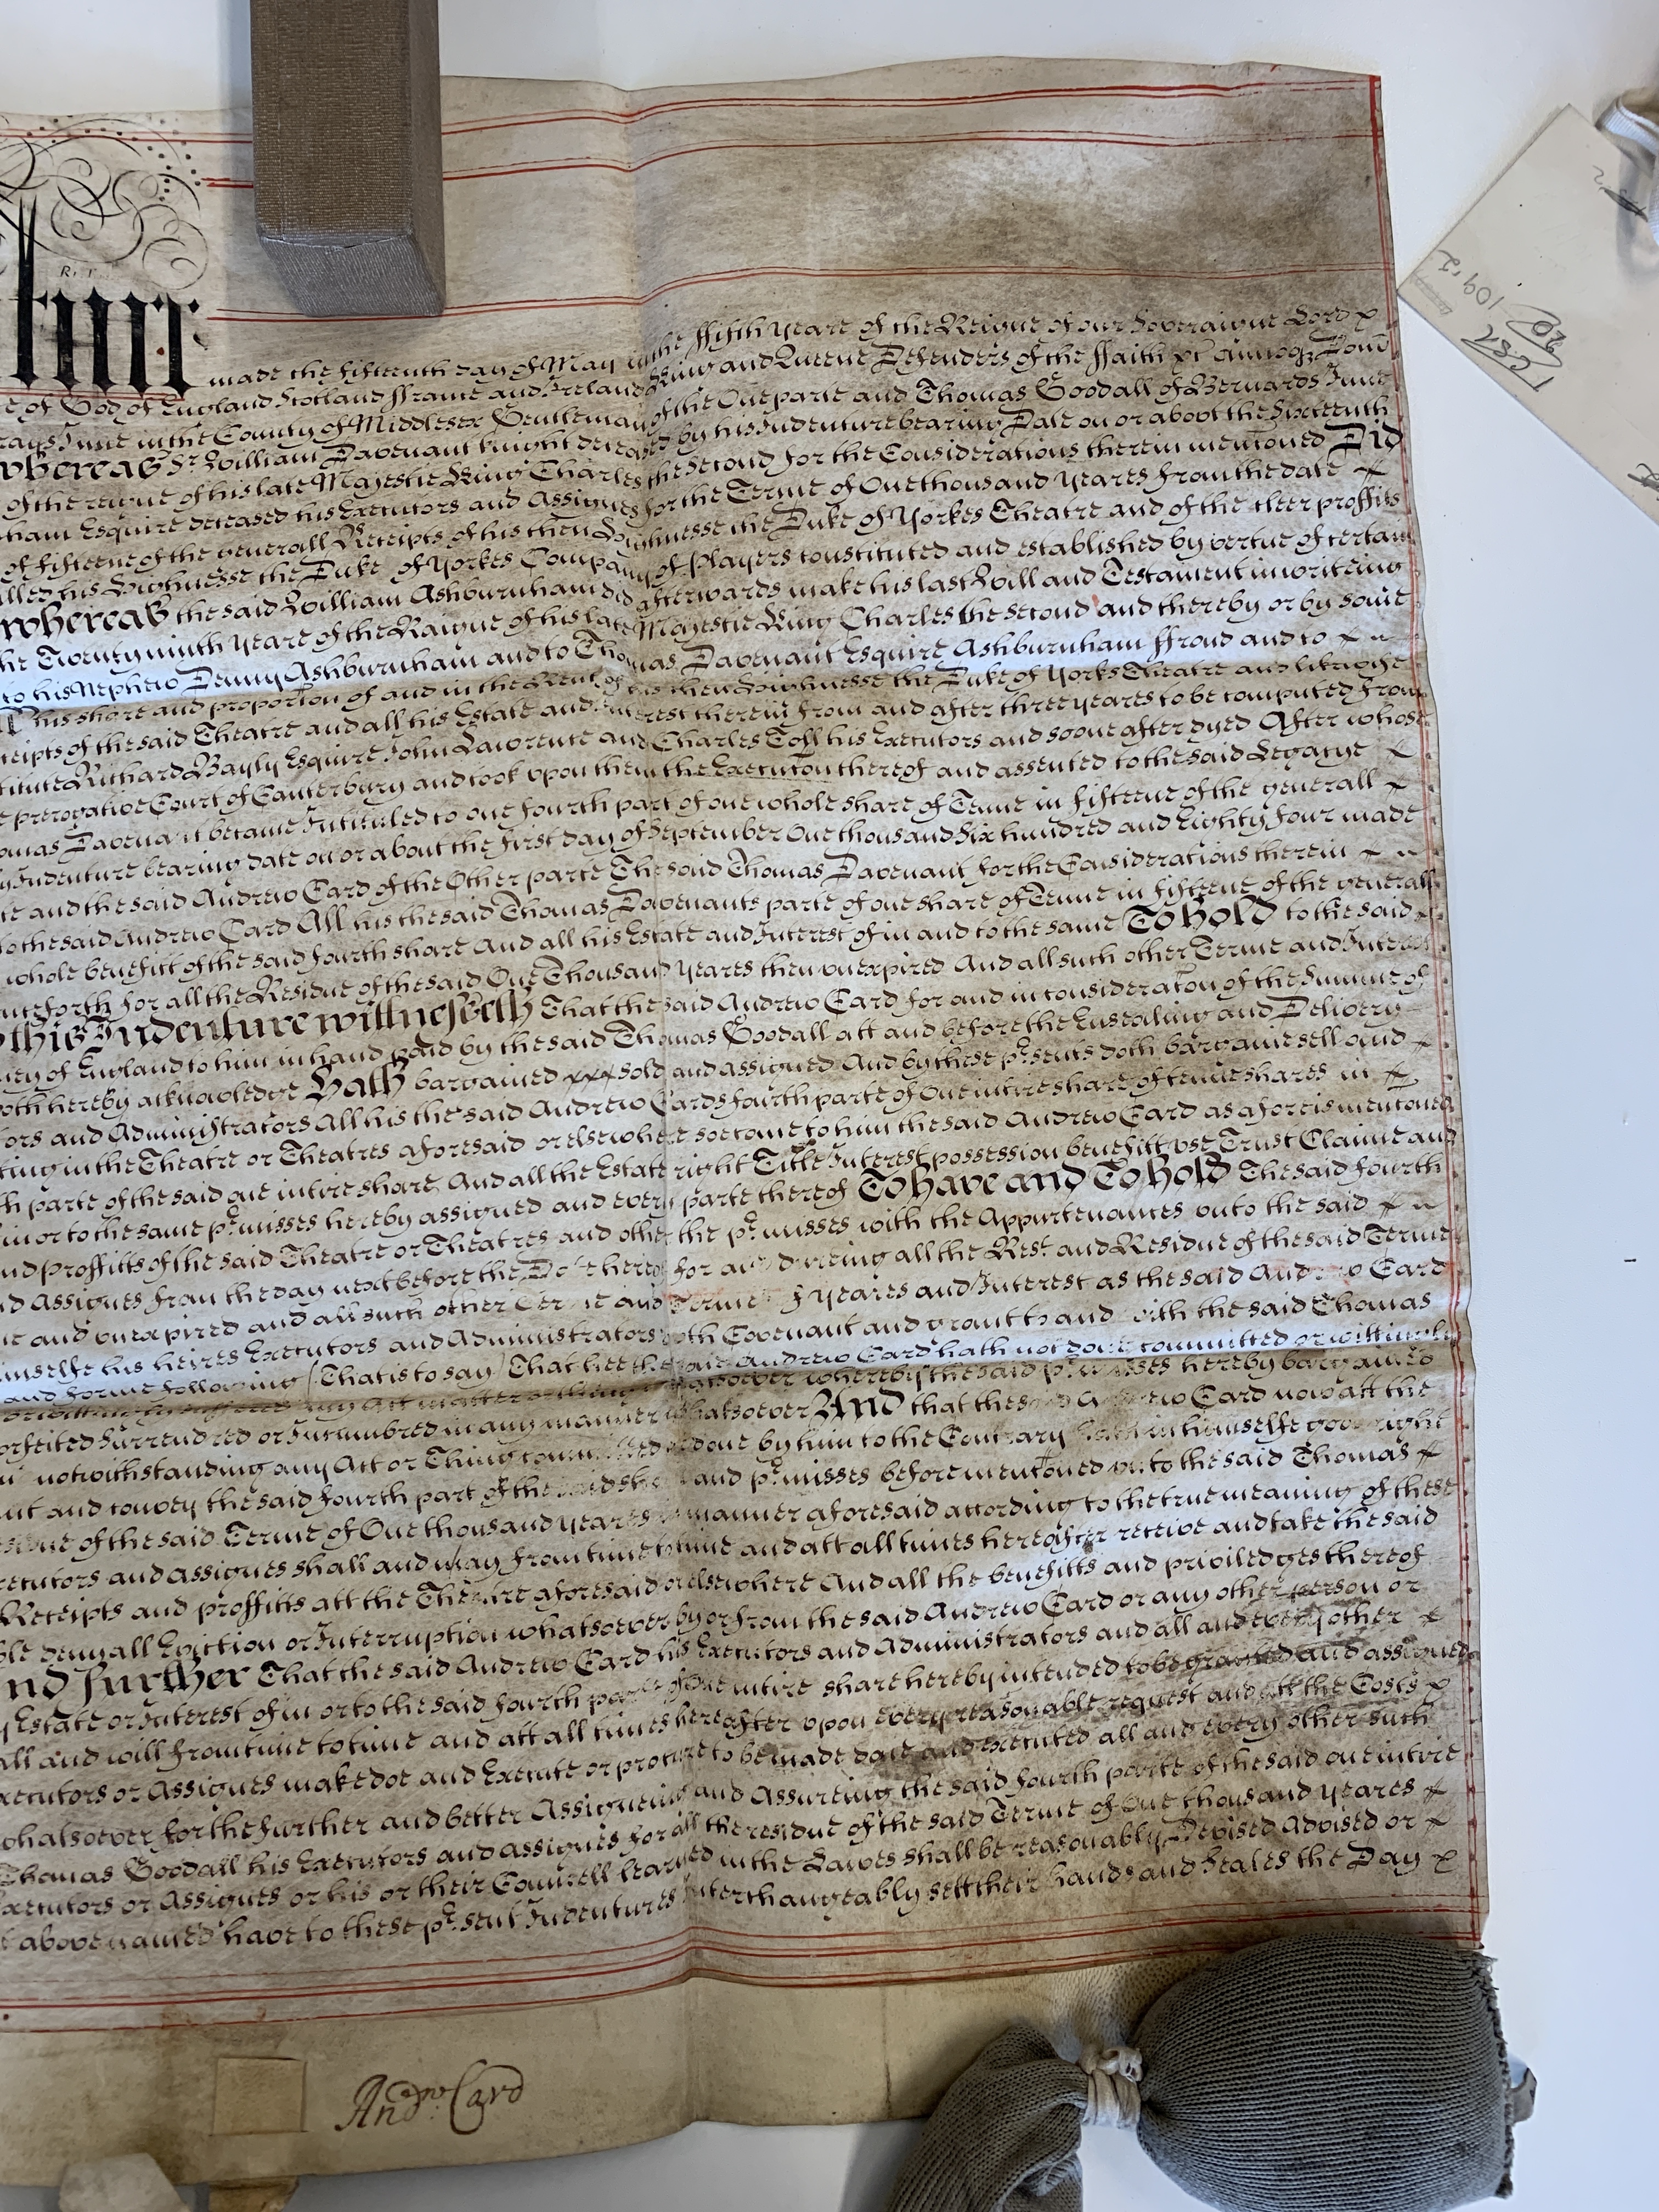 made the fifteenth day of May in the ffifth yeare of the Reigne of our Soveraigne Lord
of God of England Scotland ffrance and Ireland King and Queene Defenders of the ffaith
rays Inne in the County of Middlesex Gentleman of the One parte and Thomas Goodall of Bernards Inne
whereas Sr. William Davenant knight deceased by his Indenture bearing Date on or about the Sixteenth
of the reigne of his late Majestie King Charles the Second for the Considerations therein mentioned Did
ham Esquire deceased his Executors and Assignes for the Terme of One thousand yeares from the date
of fifteene of the generall Receipts of his then Highnesse the Duke of Yorkes Theatre and of the cleer proffitts
alled his Highnesse the Duke of Yorkes Company of Players constituted and established by vertue of certain
whereas the said William Ashburnham did afterwards make his last Will and Testament in writeing
he Twenty ninth yeare of the Raigne of his late Majestie King Charles the second and thereby or by some
to his Nephew Denny Ashburnham and to Thomas Davenant Esquire Ashburnham ffroud and to
his share and proportion of and in the Rent of his then Highnesse the Duke of Yorks Theatre and likewise
ceipts of the said Theatre and all his Estate and Interest therein from and after three yeares to be computed from
titute Richard Bayly Esquire John Lawrence and Charles Toll his Executors and soone after dyed After whose
prerogative Court of Canterbury and took upon them the Execution thereof and assented to the said Legacye
omas Davenant became Intituled to one fourth part of one whole share of Tenne in fifteene of the generall
Indenture bearing date on or about the first day of September One thousand Six hundred and Eighty four made
te and the said Andrew Card of the Other parte The said Thomas Davenant for the Considerations therein
to the said Andrew Card All his the said Thomas Davenants parte of one share of Tenne in fifteene of the generall
whole benefitt of the said fourth share And all his Estate and Interest of in and to the same To hold to the said
nceforth for all the Residue of the said One Thousand yeares then unexpired And all such other Terme and Interest
this Indenture witnesseth That the said Andrew Card for and in consideration of the Summe of
ney of England to him in hand paid by the said Thomas Goodall att and before the Ensealing and Delivery
oth hereby acknowledge Hath bargained xxx sold and assigned And by these p'sents doth bargaine sell and
ors and Administrators All his the said Andrew Cards fourth parte of One intire share of tenne shares in
ting in the Theatre or Theatres aforesaid or elsewhere soe come to him the said Andrew Card as aforeis mentioned
h parte of the said one intire share And all the Estate right Title Interest possession benefitt use Trust Claime and
in or to the same p'misses hereby assigned and every parte thereof To have and To hold The said fourth
nd proffitts of the said Theatre or Theatres and other the p'misses with the Appurtenances unto the said
d Assignes from the day next before the Date hereof for and dureing all the Rest and Residue of the said Terme
and unexpired and all such other Terme and Termes of yeares and Interest as the said Andrew Card
imselfe his heires Executors and Administrators doth Covenant and grant to and with the said Thomas
and forme following (That is to say) That hee the said Andrew Card hath not done committed or wittingly
any Act matter or thing whatsoever whereby the said p'misses hereby bargained
orfeited Surrendred or Incumbred in any manner whatsoever And that the said Andrew Card now att the
notwithstanding any Act or Thing committed or done by him to the Contrary hath in himselfe good right
nt and convey the said fourth part of the said share and p'misses before mentioned unto the said Thomas
esidue of the said Terme of One thousand yeares in manner aforesaid according to the true meaning of these
xecutors and assignes shall and may from time to time and att all times hereafter receive and take the said
Receipts and proffitts att the Theatre aforesaid or elsewhere And all the benefitts and priviledges thereof
ble denyall Eviction or Interruption whatsoever by or from the said Andrew Card or any other person or
nd further That the said Andrew Card his Executors and Administrators and all and every other
Estate or Interest of in or to the said fourth parte of One intire share hereby intended to be granted and assigned
all and will from time to time and att all times hereafter upon every reasonable request and att the Costs
xecutors or Assignes make doe and Execute or procure to be made done and executed all and every other such
whatsoever for the further and better Assigneing and Assureing the said fourth parte of the said one intire
Thomas Goodall his Executors and assignes for all the residue of the said Terme of One thousand yeares
xecutors or Assignes or his or their Councell learned in the Lawes shall be reasonably Devised Advised or
above named have to these p'sent Indentures Interchangeably sett their hands and Seales the Day
Andrw. Card
109.2